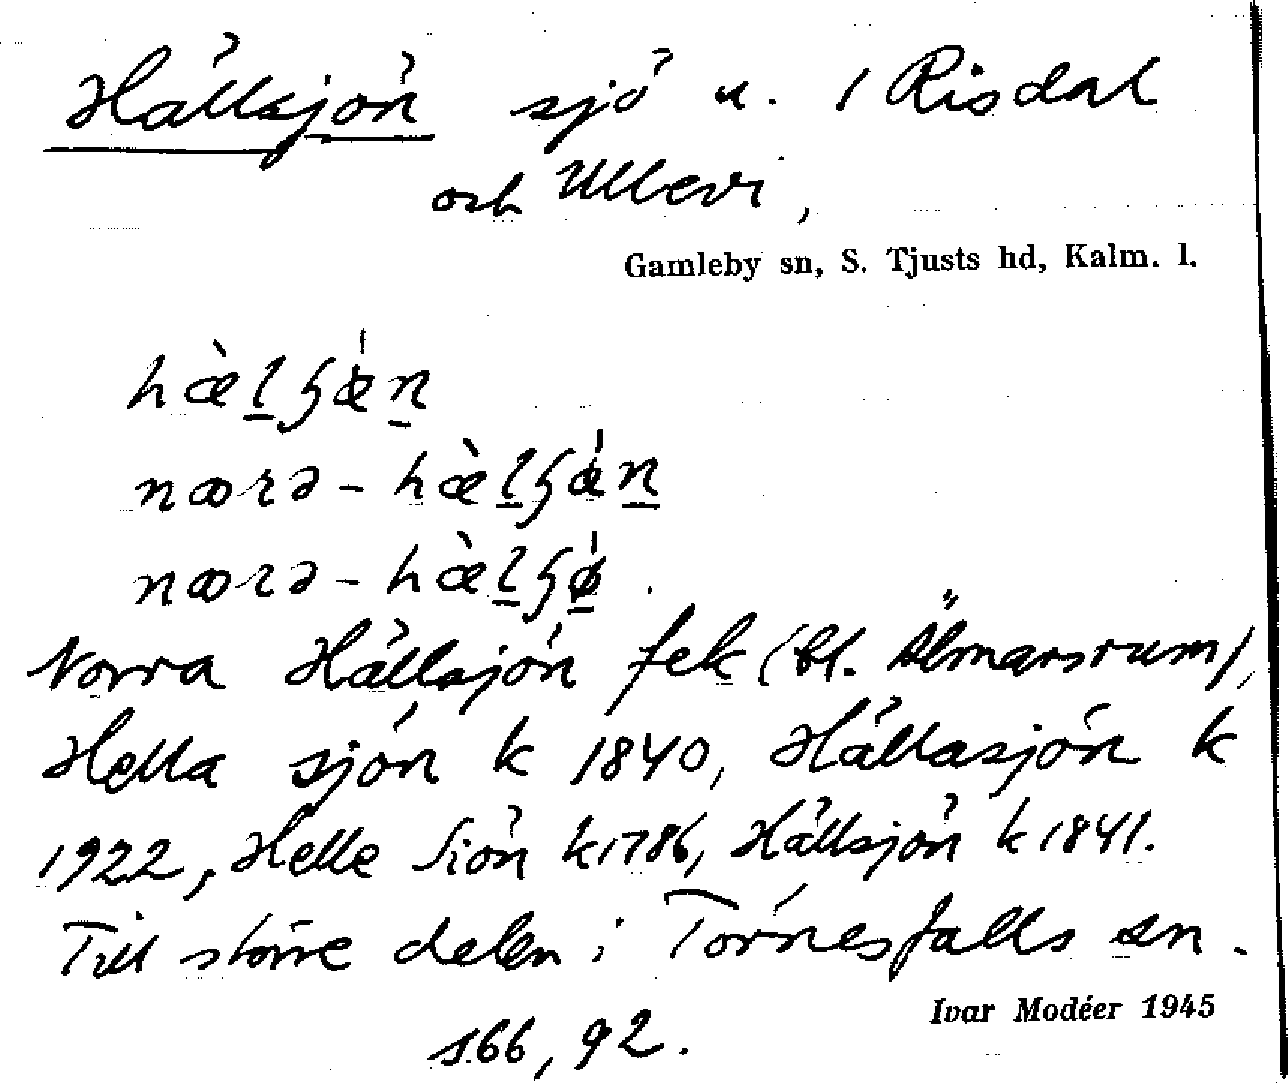 Hällsjön sjö u. 1 Risdal
och Ullevi,
Gamleby sn, S. Tjusts hd, Kalm. l.
hæ̀l̠ʂǽn̠
nærə - hæ̀l̠ʂǽn̠
nærə - hæ̀l̠ʂǿ̠.
Norra Hällsjön fek (bl. Älmarsrum),
Hella sjön k 1840, Hällasjön k
1922, Helle Siön k 1786, Hällsjön k 1841.
Till större delen i Törnesfalls sn.
s. 66, 92.
Ivar Modéer 1945